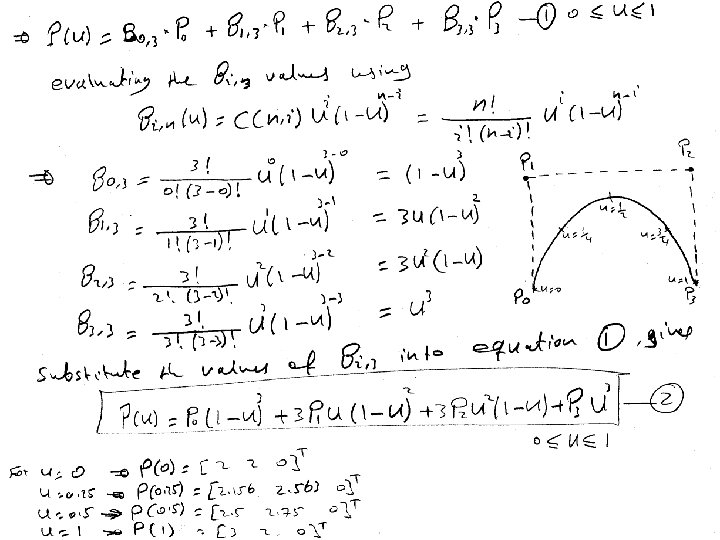 ⇒ P(u) = B0,3·P0 + B1,3·P1 + B2,3·P2 + B3,3·P3 —① 0 ≤ u ≤ 1
evaluating the Bi,3 values using
Bi,n(u) = C(n,i) u^i (1-u)^(n-i) = n!/(i!(n-i)!) u^i (1-u)^(n-i)
⇒ B0,3 = 3!/(0!(3-0)!) u^0 (1-u)^(3-0) = (1-u)^3
B1,3 = 3!/(1!(3-1)!) u^1 (1-u)^(3-1) = 3u(1-u)^2
B2,3 = 3!/(2!(3-2)!) u^2 (1-u)^(3-2) = 3u^2(1-u)
B3,3 = 3!/(3!(3-3)!) u^3 (1-u)^(3-3) = u^3
P1
P2
u=1/2
u=1/4
u=3/4
P0
u=0
u=1
P3
substitute the values of Bi,3 into equation ①, gives
P(u) = P0(1-u)^3 + 3P1u(1-u)^2 + 3P2u^2(1-u) + P3u^3 —②
0 ≤ u ≤ 1
For u=0 ⇒ P(0) = [2 2 0]^T
u=0.25 ⇒ P(0.25) = [2.156 2.563 0]^T
u=0.5 ⇒ P(0.5) = [2.5 2.75 0]^T
u=1 ⇒ P(1) = [3 2 0]^T